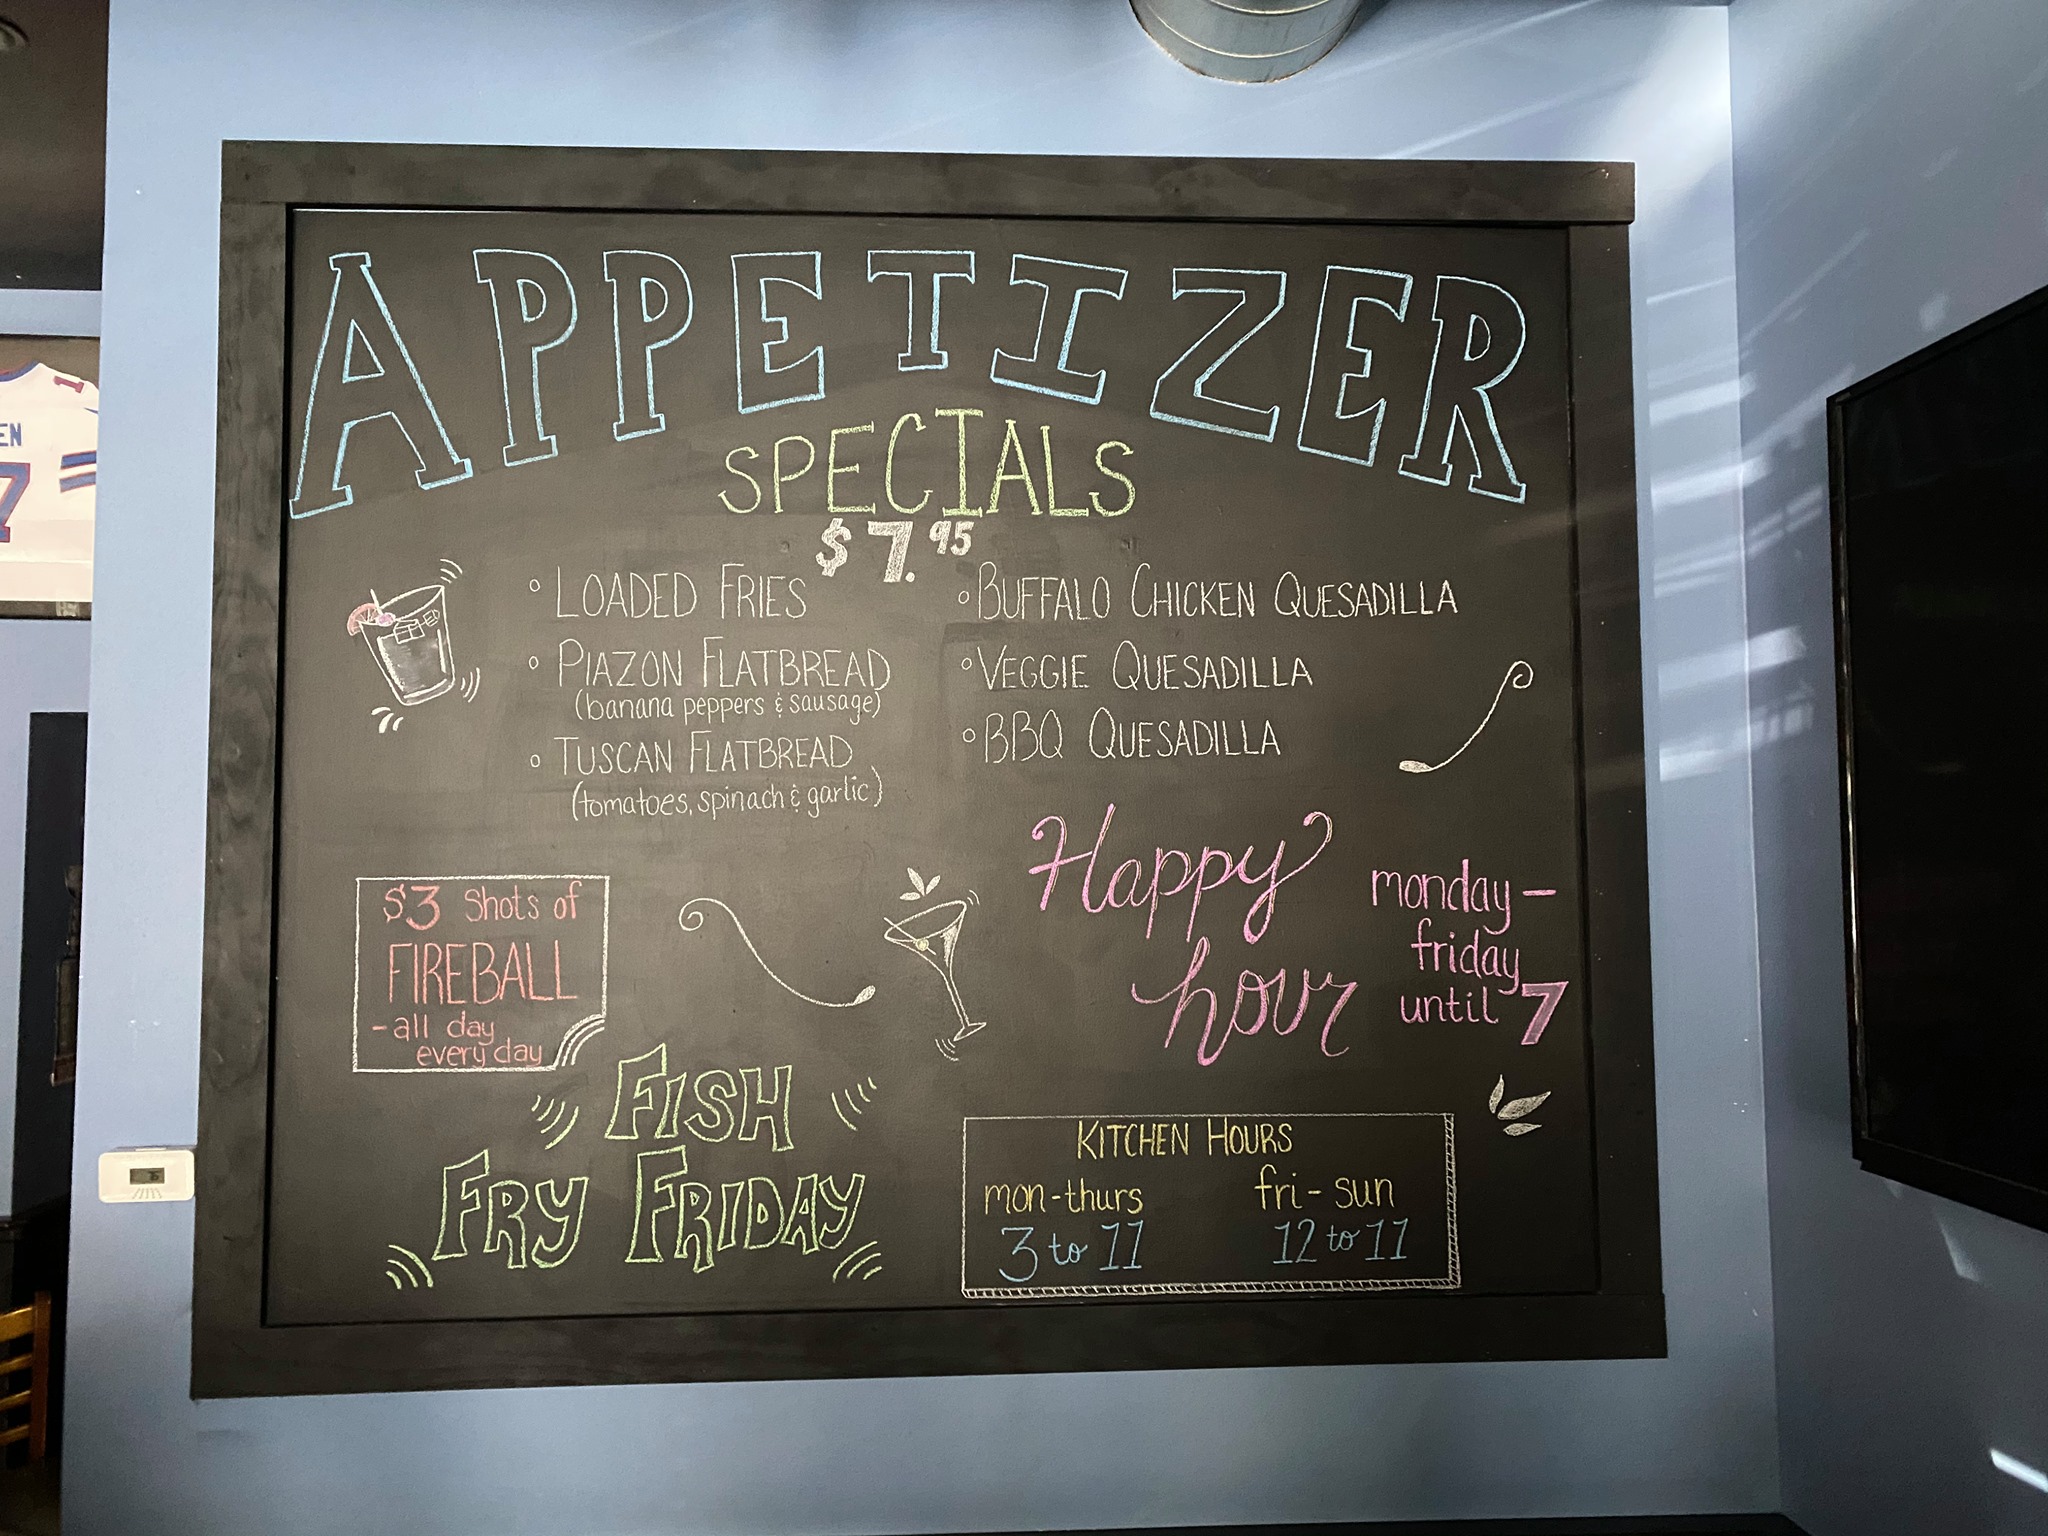 APPETIZER
SPECIALS
$7.95
◦ LOADED FRIES
◦ PIAZON FLATBREAD
(banana peppers & sausage)
◦ TUSCAN FLATBREAD
(tomatoes, spinach & garlic)
◦ BUFFALO CHICKEN QUESADILLA
◦ VEGGIE QUESADILLA
◦ BBQ QUESADILLA
$3 Shots of
FIREBALL
-all day
every day
Happy
hour
monday-
friday
until 7
FISH
FRY FRIDAY
KITCHEN HOURS
mon-thurs
3 to 11
fri-sun
12 to 11
EN
7
1